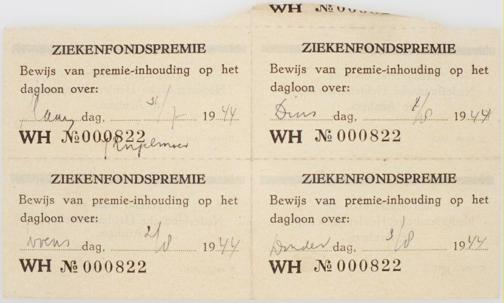 WH № 000822
ZIEKENFONDSPREMIE
Bewijs van premie-inhouding op het
dagloon over:
Maan dag, 31/7 1944
WH № 000822
ZIEKENFONDSPREMIE
Bewijs van premie-inhouding op het
dagloon over:
Dins dag, 1/8 1944
WH № 000822
ZIEKENFONDSPREMIE
Bewijs van premie-inhouding op het
dagloon over:
woens dag, 2/8 1944
WH № 000822
ZIEKENFONDSPREMIE
Bewijs van premie-inhouding op het
dagloon over:
Donder dag, 3/8 1944
WH № 000822